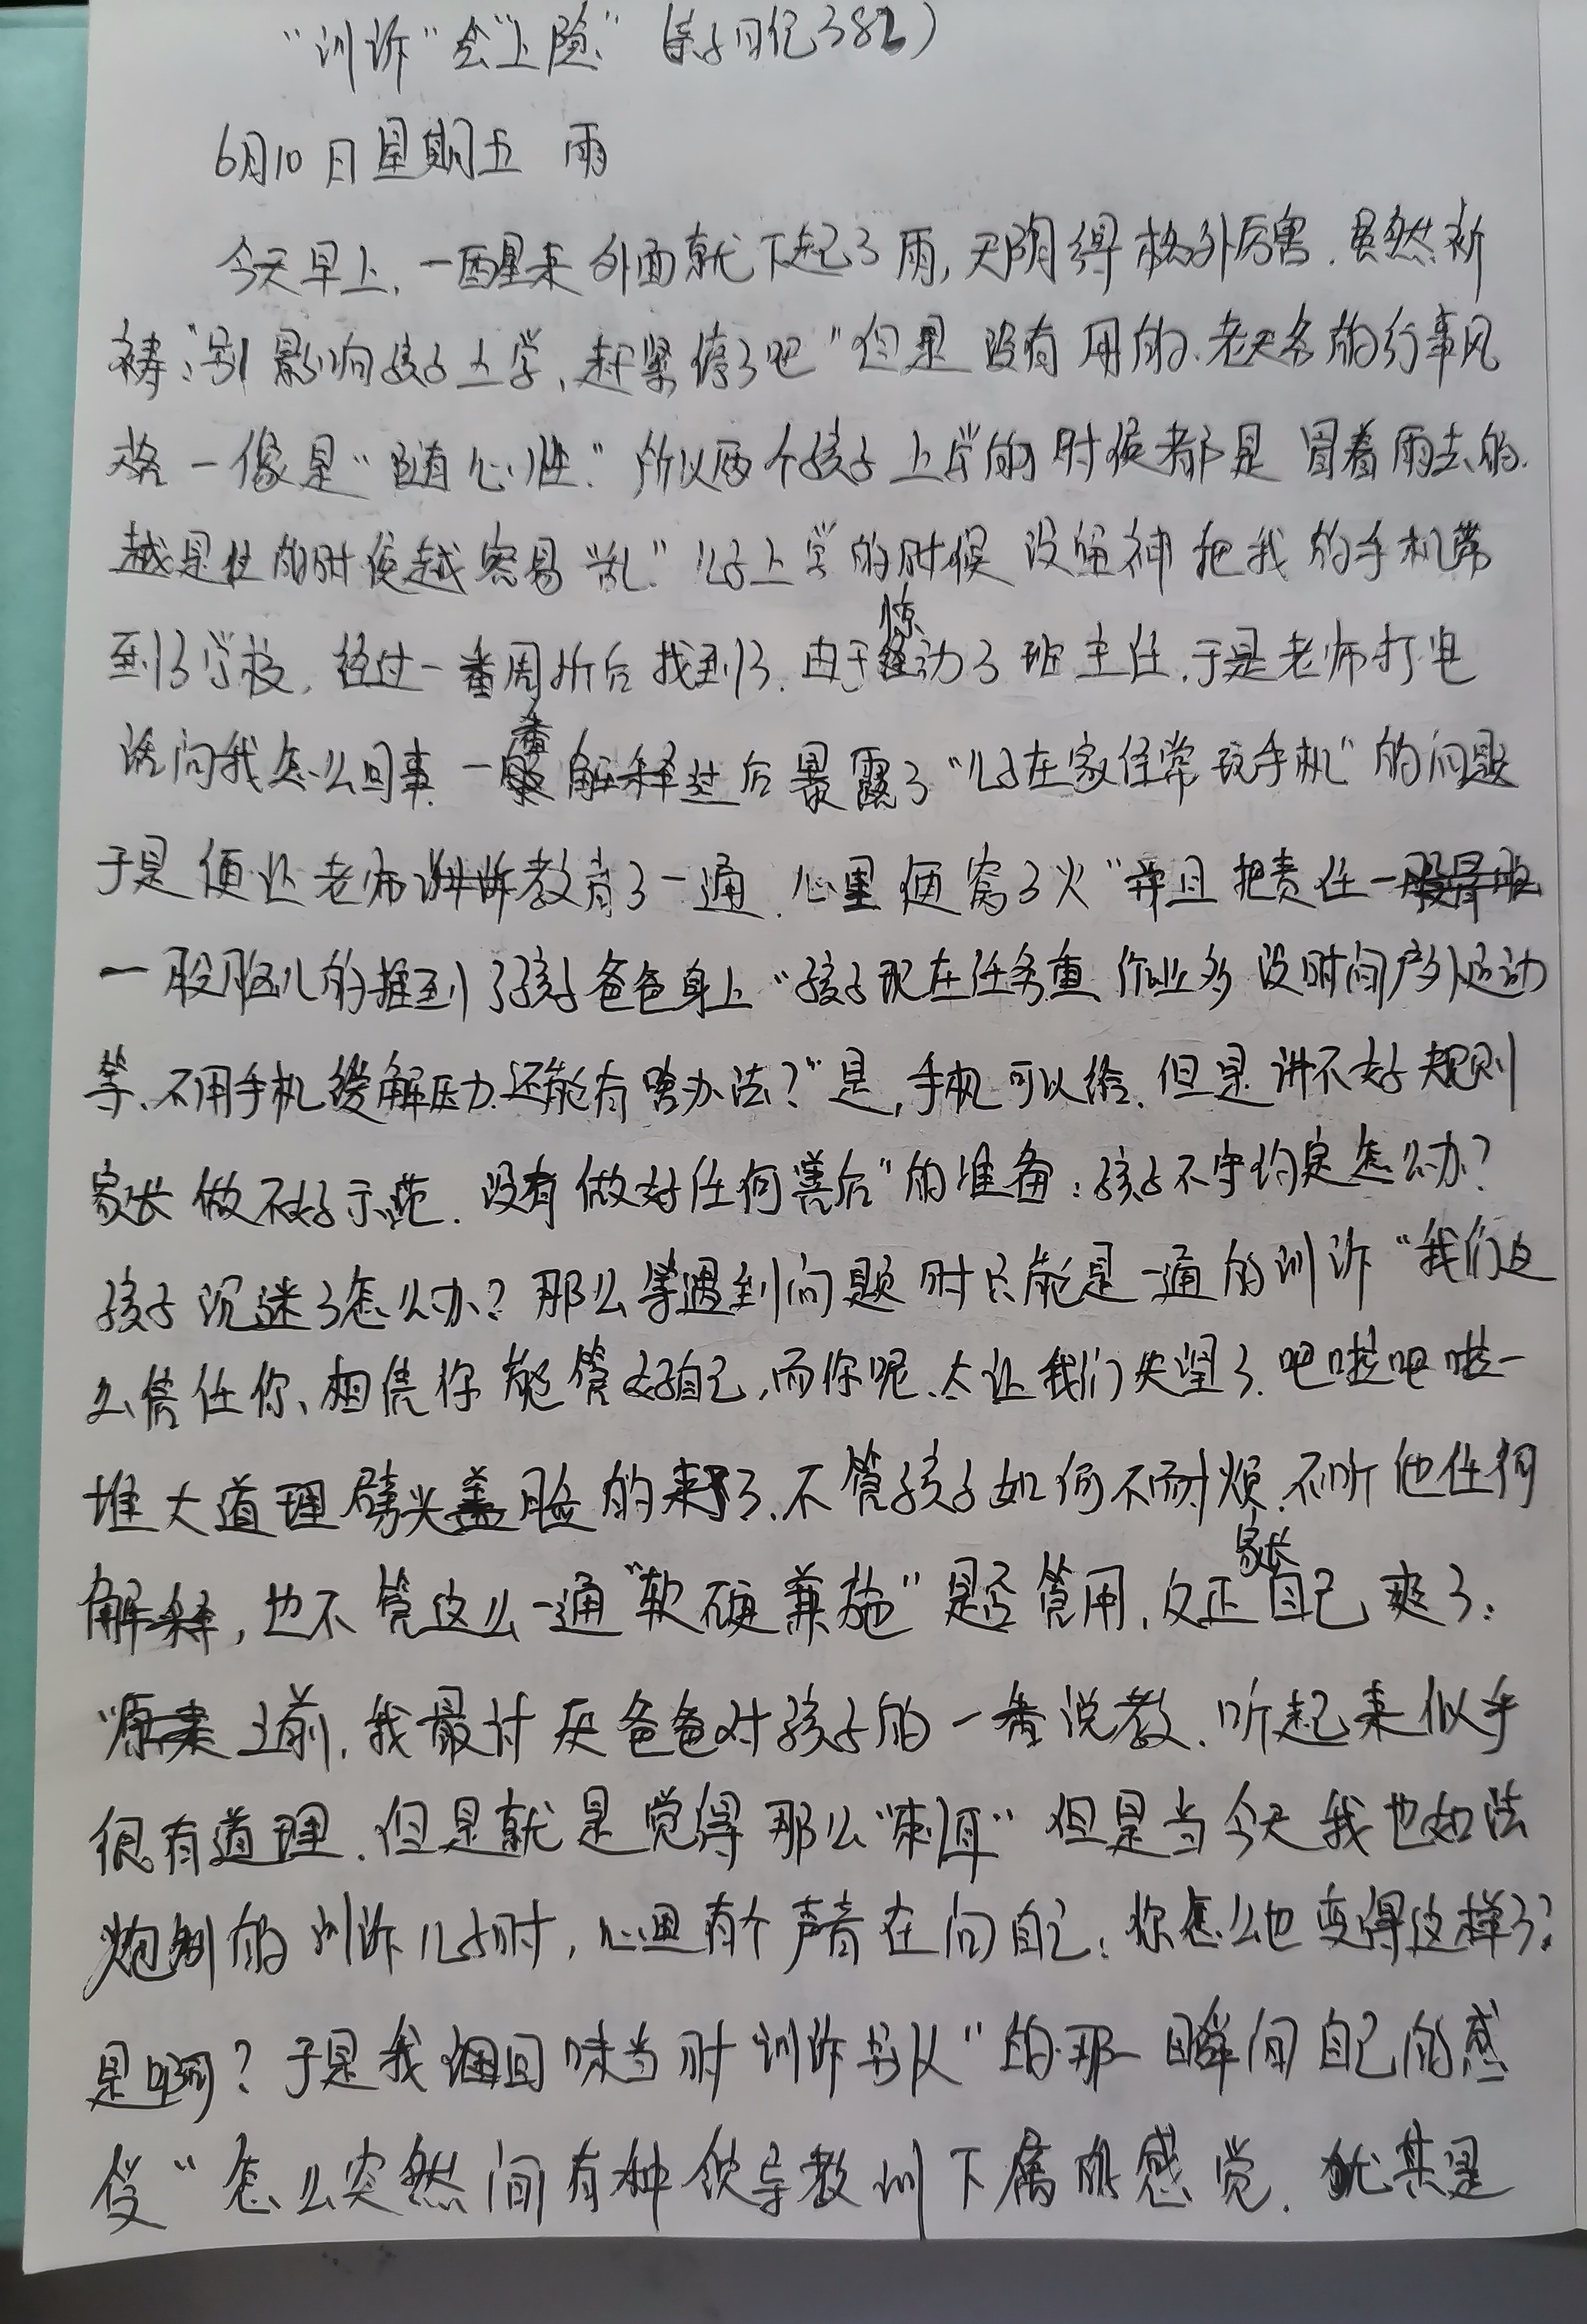 “训诉”会“上隐”（亲子日记382）
6月10日星期五 雨
今天早上，一醒来外面就下起了雨，天阴得格外厉害.虽然祈
祷：“别影响孩子上学，赶紧停了吧”但是没有用的、老天爷的行事风
格一像是“随心性.”所以两个孩子上学的时候都是冒着雨去的.
越是忙的时候越容易“乱.”儿子上学的时候没留神把我的手机带
到了学校，经过一番周折后找到了.由于惊动了班主任.于是老师打电
话问我怎么回事.一番解释过后暴露了“儿子在家经常玩手机”的问题
于是便让老师教育了一通.心里便窝了火“并且把责任
一股脑儿的推到了孩子爸爸身上“孩子现在任务重、作业多没时间户外运动
等、不用手机缓解压力.还能有啥办法？”是，手机可以给.但是讲不好规则
家长做不好示范.没有做好任何“善后”的准备：孩子不守约定怎么办？
孩子沉迷了怎么办？那么等遇到问题时只能是一通的训诉“我们这
么信任你、相信你能管好自己，而你呢、太让我们失望了.吧啦吧啦一
堆大道理劈头盖脸的来了.不管孩子如何不耐烦.不听他任何
解释，也不管这么一通“软硬兼施”是否管用，反正家长自己爽了：
“原来之前，我最讨厌爸爸对孩子的一番说教.听起来似乎
很有道理.但是就是觉得那么“刺耳”但是当今天我也如法
炮制的训诉儿子时，心里有个声音在问自己：你怎么也变得这样了？
是啊？于是我回味当时“训诉出从”的那一瞬间自己的感
受“怎么突然间有种领导教训下属的感觉.尤其是